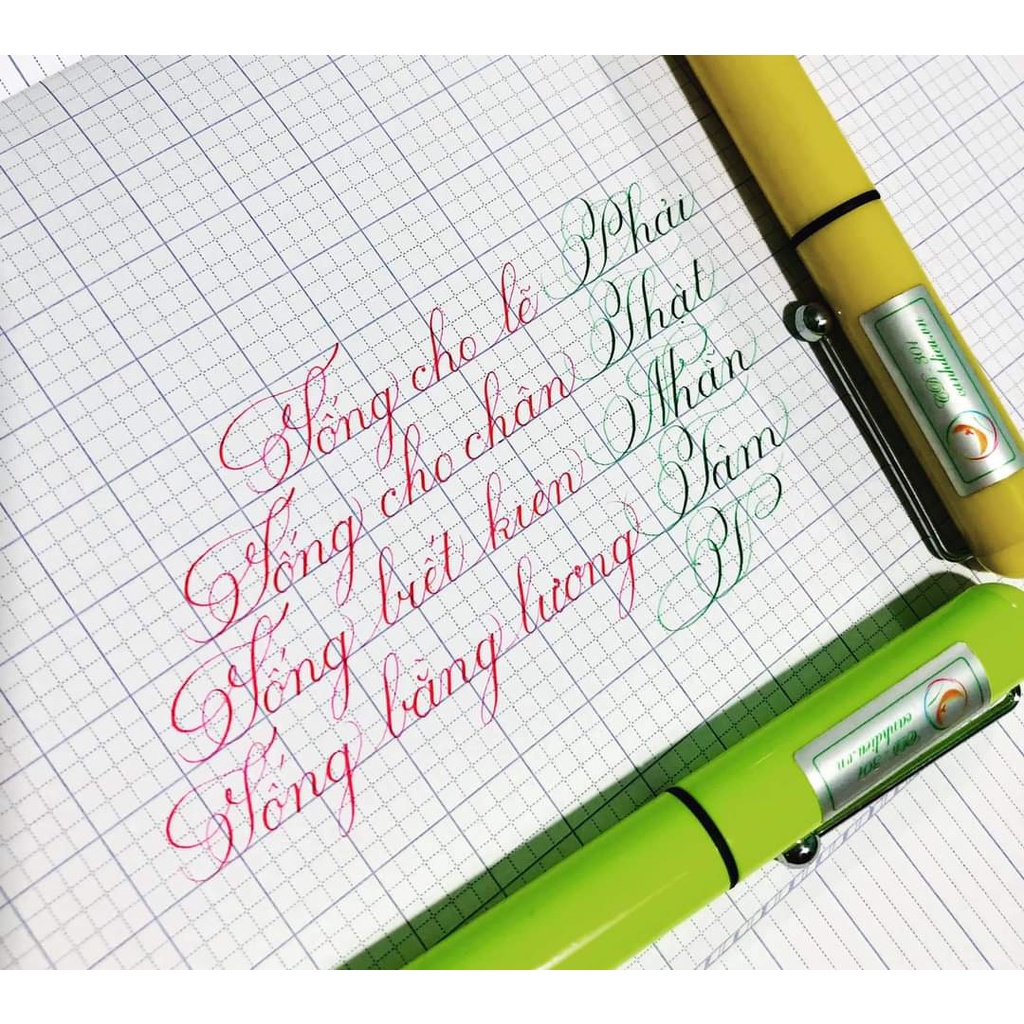 Sống cho lẽ Phải
Sống cho chân Thật
Sống biết kiên Nhẫn
Sống bằng lương Tâm
CD 301
canhdieu.vn
CD 301
canhdieu.vn